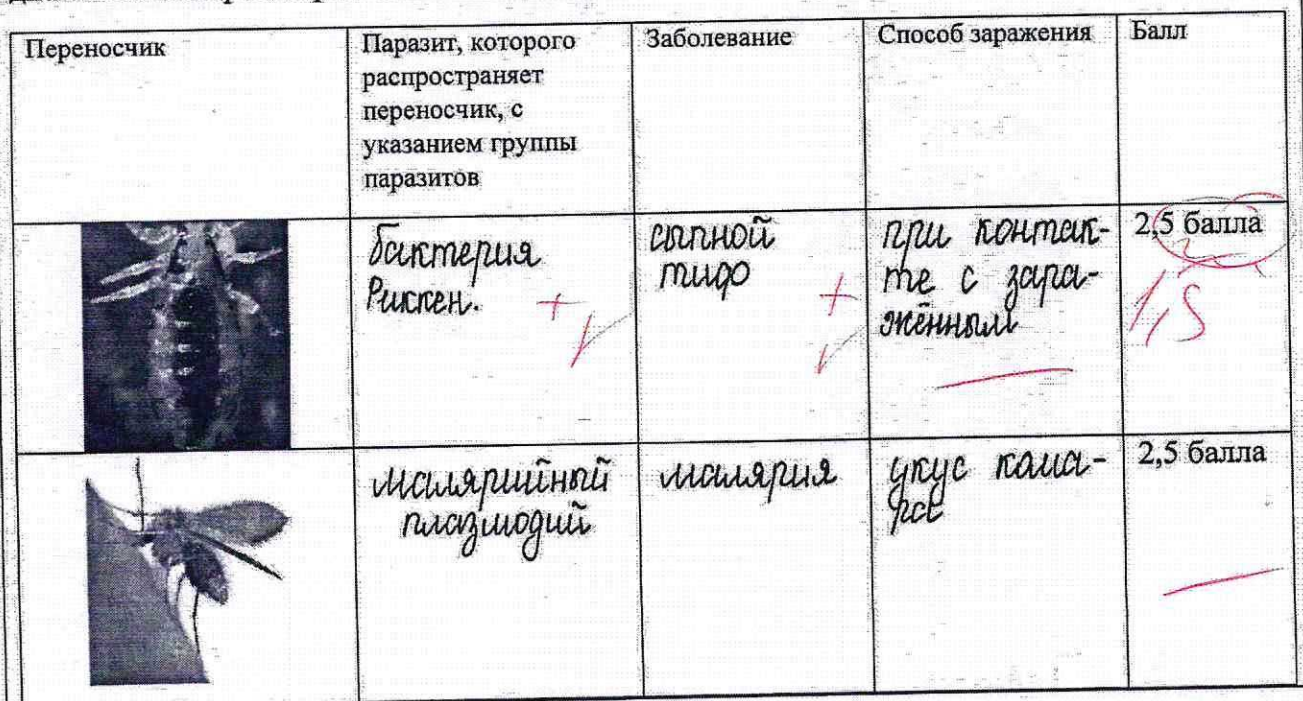 Переносчик
Паразит, которого
распространяет
переносчик, с
указанием группы
паразитов
Заболевание
Способ заражения
Балл
бактерия
Риккен.
+
сыпной
тиф
+
при контак-
те с зара-
жённым
2,5 балла
1,5
малярийный
плазмодий
малярия
укус кома-
ра
2,5 балла